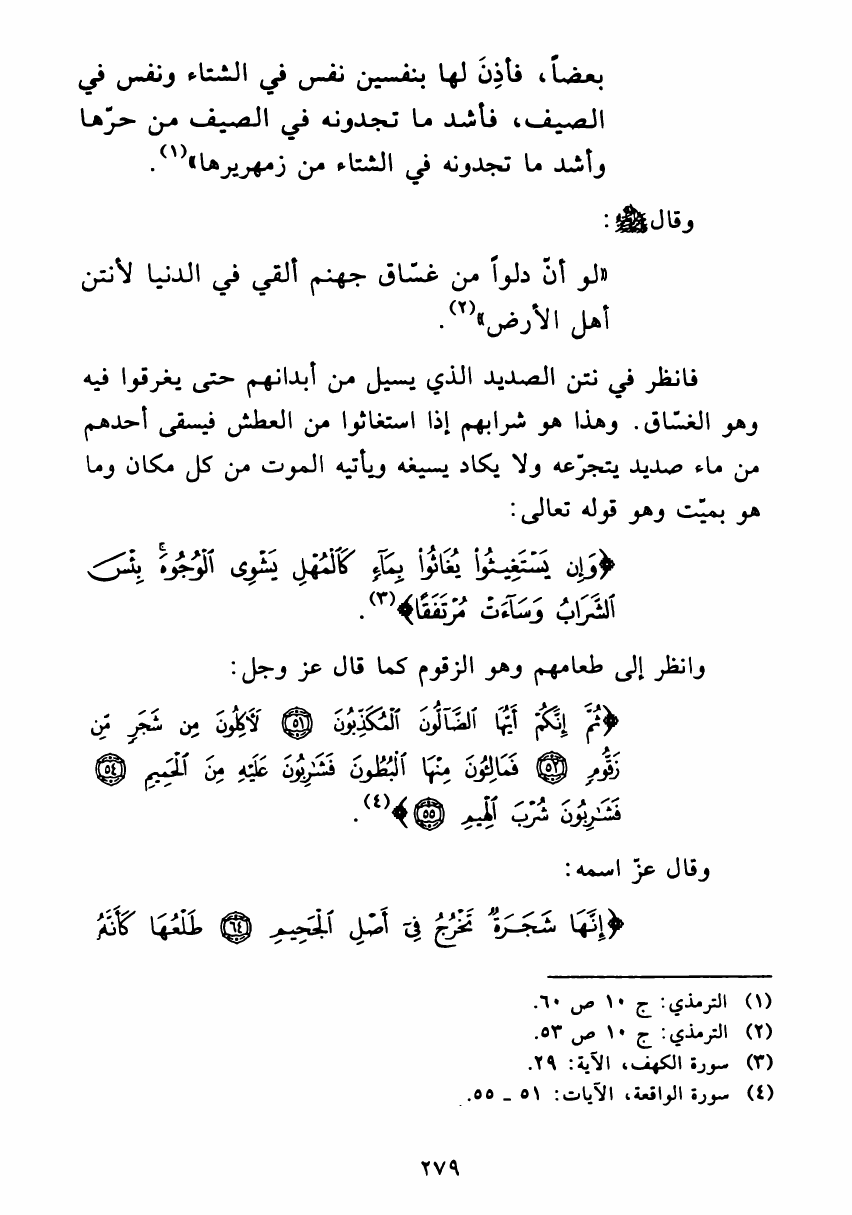 بعضاً، فأذِنَ لها بنفسين نفس في الشتاء ونفس في
الصيف، فأشد ما تجدونه في الصيف من حرّها
وأشد ما تجدونه في الشتاء من زمهريرها»(١).
وقالﷺ:
«لو أنّ دلواً من غسّاق جهنم ألقي في الدنيا لأنتن
أهل الأرض»(٢).
فانظر في نتن الصديد الذي يسيل من أبدانهم حتى يغرقوا فيه
وهو الغسّاق. وهذا هو شرابهم إذا استغاثوا من العطش فيسقى أحدهم
من ماء صديد يتجرّعه ولا يكاد يسيغه ويأتيه الموت من كل مكان وما
هو بميّت وهو قوله تعالى:
﴿وَإِن يَسْتَغِيثُوا۟ يُغَاثُوا۟ بِمَآءٍ كَٱلْمُهْلِ يَشْوِى ٱلْوُجُوهَ ۚ بِئْسَ
ٱلشَّرَابُ وَسَآءَتْ مُرْتَفَقًا﴾(٣).
وانظر إلى طعامهم وهو الزقوم كما قال عز وجل:
﴿ثُمَّ إِنَّكُمْ أَيُّهَا ٱلضَّآلُّونَ ٱلْمُكَذِّبُونَ ۝٥١ لَآكِلُونَ مِن شَجَرٍ مِّن
زَقُّومٍ ۝٥٢ فَمَالِـُٔونَ مِنْهَا ٱلْبُطُونَ فَشَـٰرِبُونَ عَلَيْهِ مِنَ ٱلْحَمِيمِ ۝٥٤
فَشَـٰرِبُونَ شُرْبَ ٱلْهِيمِ ۝٥٥﴾(٤).
وقال عزّ اسمه:
﴿إِنَّهَا شَجَرَةٌ تَخْرُجُ فِىٓ أَصْلِ ٱلْجَحِيمِ ۝٦٤ طَلْعُهَا كَأَنَّهُۥ
(١) الترمذي: ج ١٠ ص ٦٠.
(٢) الترمذي: ج ١٠ ص ٥٣.
(٣) سورة الكهف، الآية: ٢٩.
(٤) سورة الواقعة، الآيات: ٥١ ـ ٥٥.
٢٧٩